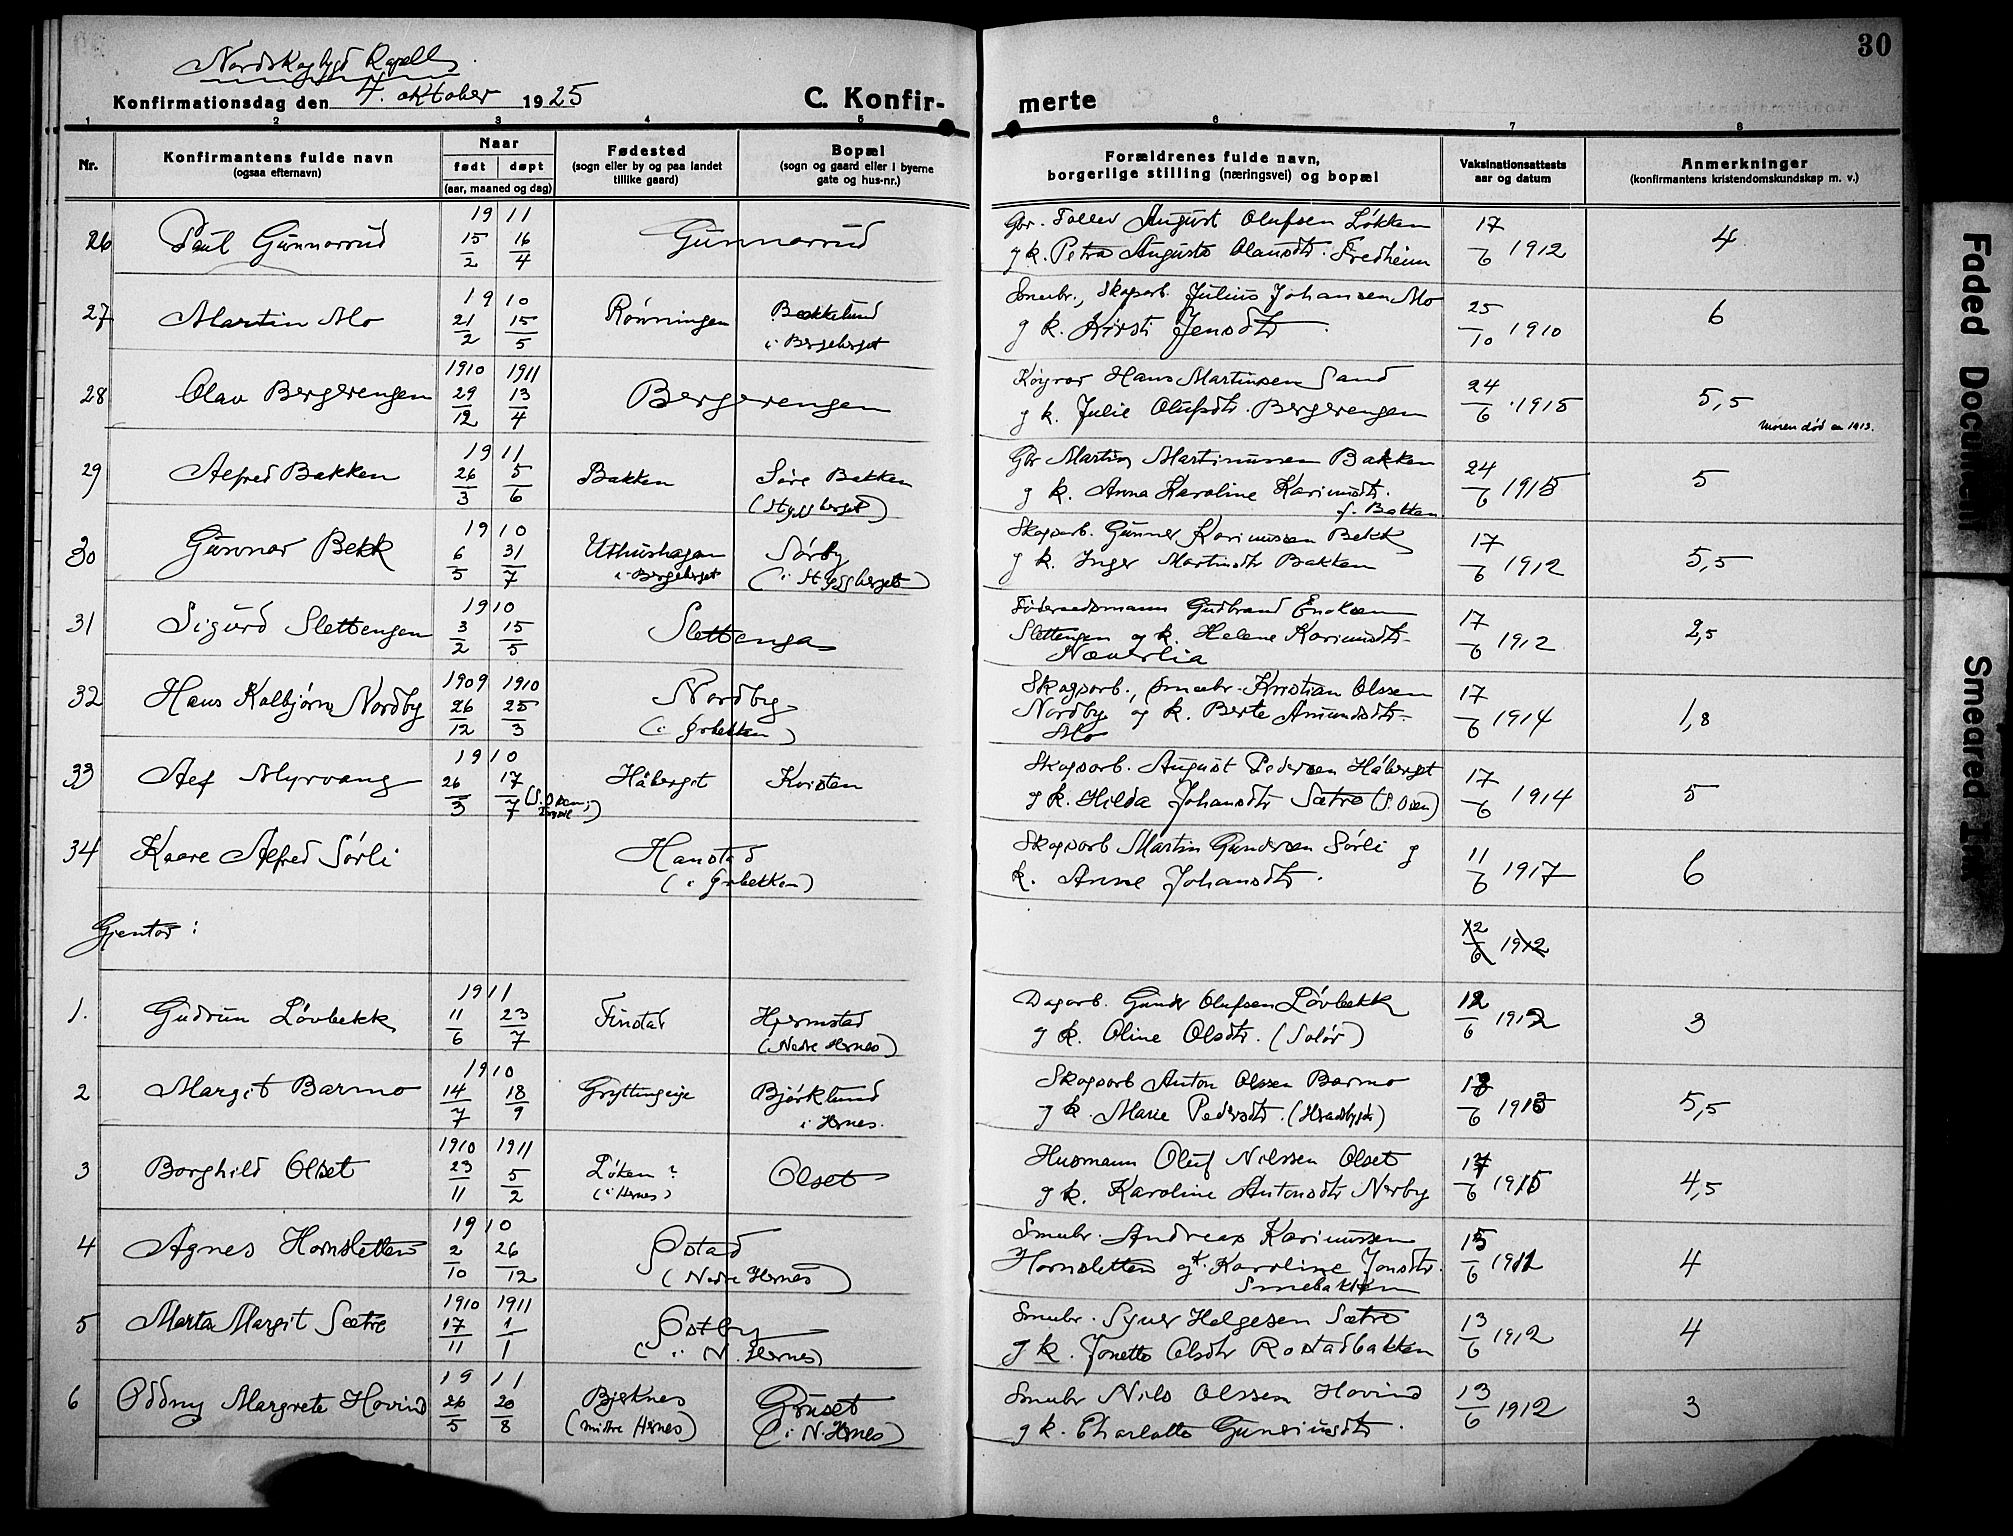 30
Nordskogbygd Kapell
Konfirmationsdag den 4. oktober 1925
C. Konfir- merte
1 2 3 4 5 6 7 8
Nr.
Konfirmantens fulde navn
(ogsaa efternavn)
Naar
født døpt
(aar, maaned og dag)
Fødested
(sogn eller by og paa landet
tillike gaard)
Bopæl
(sogn og gaard eller i byerne
gate og hus-nr.)
Forældrenes fulde navn,
borgerlige stilling (næringsvei) og bopæl
Vaksinationsattests
aar og datum
Anmerkninger
(konfirmantens kristendomskundskap m. v.)
26 Paul Gunnarrud 1911 15/2 16/4 Gunnarrud
Gbr. Tollev August Olufsen Løkken
g k. Petra Augusta Olausdtr. Fredheim
17/6 1912 4
27 Martin Mo 1910 21/2 15/5 Rønningen Bakkelund
i Bergeberget
Smbr., Skogsarb. Julius Johansen Mo
g k. Kirsti Jensdtr.
25/10 1910 6
28 Olav Bergerengen 1910 29/12 1911 13/4 Bergerengen
Hans Martinsen Sand
g k. Julie Olufsdtr. Bergerengen
24/6 1915 5,5
Moren død 1913.
29 Alfred Bakken 1911 26/3 5/6 Bakken Søre Bakken
(Styggberget)
Gbr Martin Martinussen Bakken
g k. Anna Karoline Karimsdtr.
f. Bakken
24/6 1915 5
30 Gunnar Bekk 1910 6/5 31/7 Uthushagan
i Bergeberget
Sørby
(i Styggberget)
Skogsarb. Gunner Karinussen Bekk
g k. Inger Martinsdtr Bakken
17/6 1912 5,5
31 Sigurd Slettengen 1910 3/2 15/5 Slettenga
Føderaadsmann Gudbrand Enoksen
Slettengen og k. Helene Karimsdtr-
Næverlia
17/6 1912 2,5
32 Hans Kolbjørn Nordby 1909 26/12 1910 25/3 Nordby
(i Grbekken)
Skogsarb., Smabr. Kristian Olssen
Nordby og k. Berte Amundsdtr-
Mo
17/6 1914 1,8
33 Alf Myrvang 1910 26/3 17/7 Håberget Kvisten
Skogsarb. August Pedersen Håberget
g k. Hilda Johansdtr Sætre (S. Osen)
17/6 1914 5
34 Kaare Alfred Sørli Hanstad
(i Grbekken)
Skogsarb Martin Gundersen Sørli g
k. Anne Johansdtr.
11/6 1917 6
Gjentar:
12/6 1912
1. Gudrun Løvbekk 1911 11/6 23/7 Finstad Hjermstad
(Nedre Hernes)
Dagarb. Gunder Olufsen Løvbekk
g k. Oline Olsdtr. (Solør)
12/6 1912 3
2 Margit Barmo 1910 14/7 18/9 Gryttingeie Bjørklund
i Hernes.
Skogsarb Anton Olssen Barmo
g k. Marie Pedersdtr. (Heradsbygd)
6 5,5
3 Borghild Olset 1910 23/11 1911 5/2 Løken?
(i Hernes)
Olset
Husmann Oluf Nilssen Olset
g k. Karoline Antonsdtr Nerby
6 1915 4,5
4 Agnes Hornsletten 1910 2/10 26/12 Ostad
(Nedre Hernes)
Smbr. Andreas Karinussen
Hornsletten og k. Karoline Jonsdtr.
Smebakken
15/6 1911 4
5 Marta Margit Sætre 1910 17/11 1911 1/1 Østby
(i N. Hernes)
Smbr. Syver Helgesen Sætre
g k. Jonette Olsdtr Rostadbakken
13/6 1912 4
6 Oddny Margrete Hovind 1911 26/5 20/8 Bjerknes
(midtre Hernes)
Gruset
(i N. Hernes)
Smbr Nils Olssen Hovind
g k. Charlotte Guneriusdtr.
13/6 1912 3
Faded Document
Smeared Ink